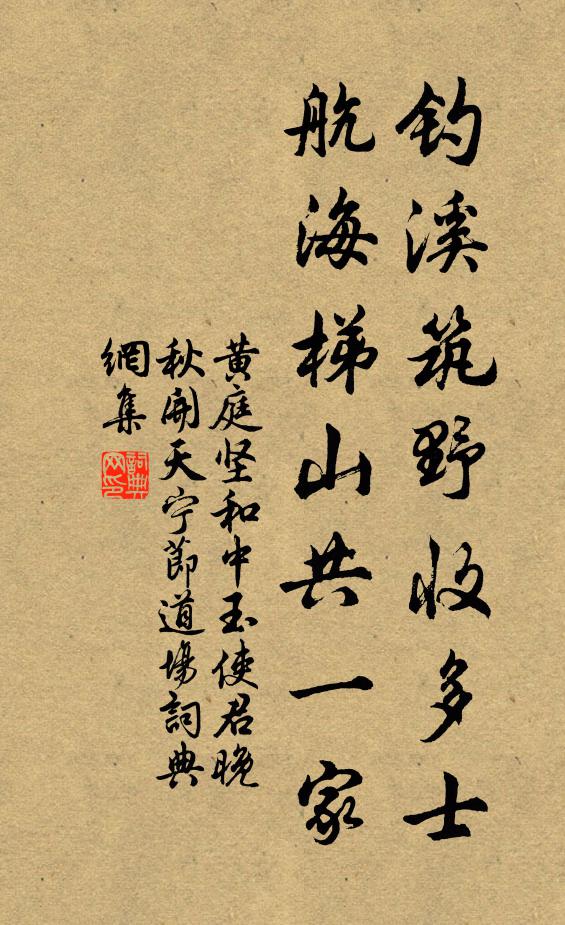 钓溪筑野收多士
航海梯山共一家
黄庭坚和中玉使君晚
秋開天宁節道場詞典
網集
詞典網印